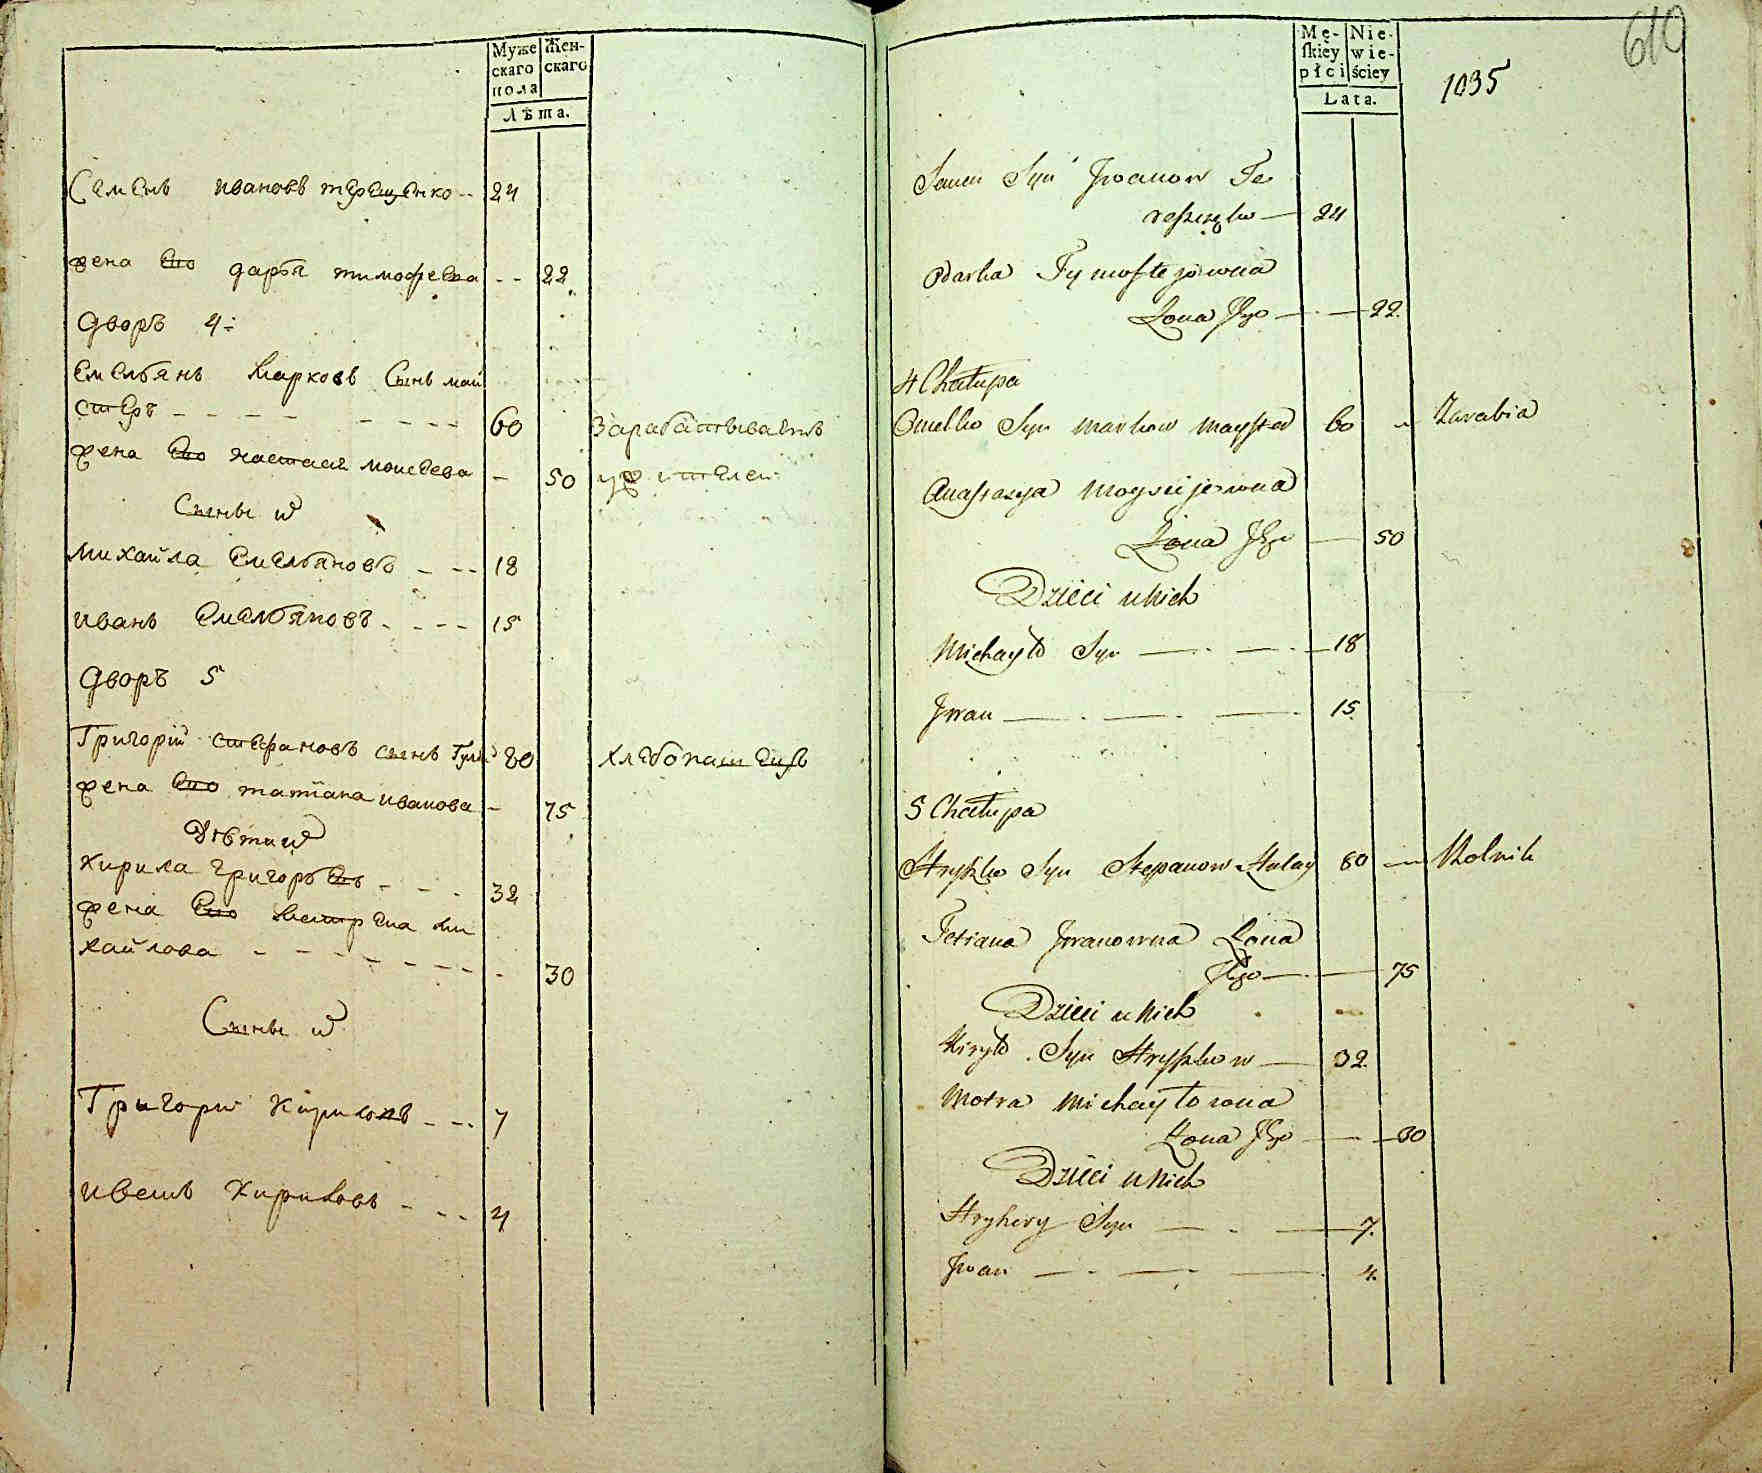 Муже
скаго
пола
Жен-
скаго
Лѣта.
Семенъ ивановъ терещенко -- 24
жена Его дарья тимофеева -- 22
дворъ 4:
Емельянъ Марковъ Сынъ май
стеръ - - - - - - - - 60 Зарабатываетъ
жена Его настася моисеева - 50
Сыны ихъ
Михайла Емельяновъ - -- 18
иванъ Емельяновъ - - - - 15
дворъ 5
Григорій стефановъ сынъ 80 хлебопашецъ
жена Его татіана иванова - 75
Дѣти ихъ
Кирила григорьевъ - - - 32
жена Его Мотрена ми
хайлова - - - - - - - - 30
Сыны ихъ
Григори Кириловъ - -- 7
иванъ Кириловъ - - - 4
Mę-
skiey
płci
Nie-
wie-
ściey
Lata.
1035
610
Semen Syn Jwanow Te
reszczęko — 24
Odarka Tymofiejowna
Żona Jego — — 22.
4 Chałupa
Omelko Syn Markow Mayster 60 Zarabia
Anastazya Moysiejowna
Żona Jego — 50
Dzieci u Nich
Michayło Syn — - — - — 18
Jwan — - — - — - 15
5 Chałupa
Hryszko Syn Stepanow Hulay 80 — Rolnik
Tetiana Jwanowna Żona
Jego — — 75
Dzieci u Nich
Kiryło Syn Hryszkow — 32.
Motra Michayłowna
Żona Jego — — 30
Dzieci u Nich
Hryhory Syn — - — 7.
Jwan — - — - — 4.